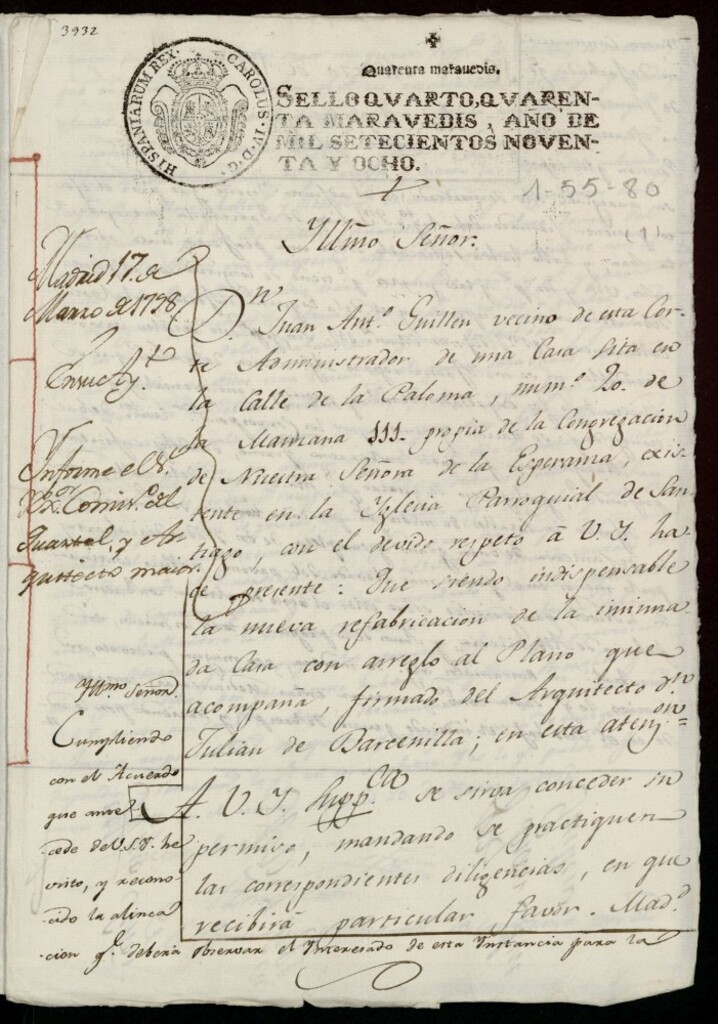 3932
HISPANIARUM REX. CAROLUS. IV. D. G.
Quarenta maravedis.
SELLO QVARTO, QVAREN-
TA MARAVEDIS, AÑO DE
MIL SETECIENTOS NOVEN-
TA Y OCHO.
1-55-80
Yllmo Señor.
Madrid 17. de
Marzo de 1798
En su Ay.to
Informe el Sr.
Comisº. del
Quartel, y Ar-
quitecto maior.
D.n Juan Antº. Guillen vecino de esta Cor-
te Administrador de una Casa sita en
la Calle de la Paloma, numº. 20. de
la Manzana 111. propia de la Congregacion
de Nuestra Señora de la Esperanza, exis-
tente en la Yglesia Parroquial de San-
tiago, con el devido respeto à V. Y. ha-
ce presente: Que siendo indispensable
la nueva refabricacion de la insinua-
da Casa con arreglo al Plano que
acompaña, firmado del Arquitecto dn.
Julian de Barcenilla; en esta atenzon=
A. V. Y. Supp.ca se sirva conceder su
permiso, mandando se practiquen
las correspondientes diligencias, en que
recibirá particular favor. Madd.
Yllmo. Señor.
Cumpliendo
con el Acuerdo
que ante-
cede de V.S.Y. he
visto, y recono-
cido la alinea-
cion q.e deberá observar el Interesado de esta Ynstancia para la